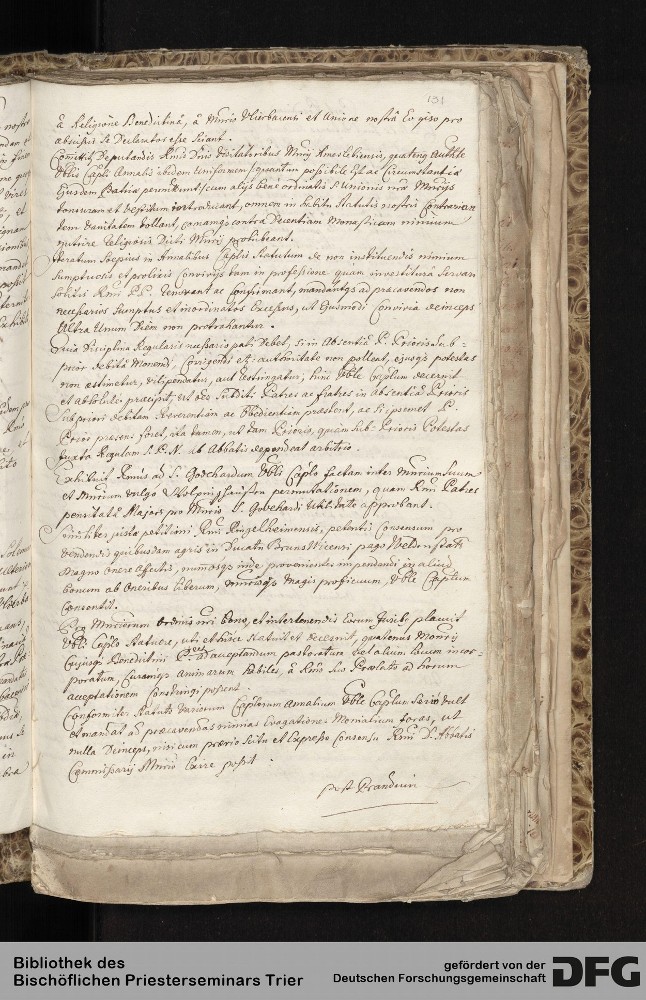 131
â Religione Benedictinâ, â Mnrio Vlierbacensi et Unione nostrâ Eo ipso pro
abscissis se Declaratos esse sciant.
Comittit Deputandis Rmis Dnis Visitatoribus Mnrij
Vblis Capli Annalis ibidem Uniformem, quantum possibile est ac Circumstantiæ
Ejusdem Patriæ permittunt, cum alijs bene ordinatis Unionis nræ Mnrijs
tonsuram et Vestitum introducant, omnem in habitu Statutis nostris Contrarian
tem Vanitatem tollant, comamq3 contra Decentiam Monasticam nimium
nutrire Religiosis Dicti Mnrij prohibeant.
Iteratum Sæpius in Annalibus Caplis Statutum de non instituendis nimium
Sumptuosis et prolixis Convivijs tam in professione quam investiturâ Servari
solitis Rmi P.P. renovant ac Confirmant, mandantq3 ad præcavendos non
necessarios Sumptus et inordinatos Excessus, ut Ejusmodi Convivia deinceps
Ultra Unum Diem non protrahantur.
Quia Disciplina Regularis necessario pati Debet, si in absentiâ P. Prioris Sub-
prior debitâ Monendi, Corrigendi etc: authoritate non polleat, ejusq3 potestas
non æstimetur, vilipendatur, aut restringatur, hinc Vble Caplum decernit
et absolute præcipit, ut oes Subditi Patres ac fratres in absentiâ Prioris
Subpriori debitam Reverentiam ac Obedientiam præstent, ac si ipsemet P.
Prior præsens foret, ita tamen, ut tam Prioris, quam Sub-Prioris Potestas
juxta Regulam S.P.N. ab Abbatis dependeat arbitrio.
Exhibuit Rmus ad S. Godehardum Vbli Caplo factam inter Mnrium Suum
et Mnrium vulgo permutationem, quam Rmi Patres
pensitatâ Majori pro Mnrio S. Godehardi Utilitate approbant.
Similiter justæ petitioni Rmi Ringelheimensis, petentis Consensum pro
vendendis quibusdam agris in Ducatu Brunsvicensi pago
Magno Onere affectis, numosq3 inde provenientes impendendi in aliud
bonum ab Oneribus liberum, Magis proficuum, Vble Caplum
Consentit.
Pro Mnriorum Ordinis nri Bono, et intertenendis Eorum Juribus placuit
Vbli Caplo Statuere, uti et hisce Statuit et Decernit, quatenus Monrij
Cujusq3 Benedictini P.res ad acceptandum pastoratum vel alium locum incor-
poratum, Curamq3 Animarum habiles, â Rmo Suo Prælato ad horum
acceptationem Constringi possent.
Conformiter Statutis Variorum Caplorum Annalium Vble Caplum Serio Vult
et mandat ad præcavendas nimias Evagationes Monialium foras, ut
nulla Deinceps, nisi cum prævio Scitu et Expresso Consensu Rmi D. Abbatis
Commissarij Mnrio Exire possit.
post Prandium
Bibliothek des
Bischöflichen Priesterseminars Trier
gefördert von der
Deutschen Forschungsgemeinschaft
DFG